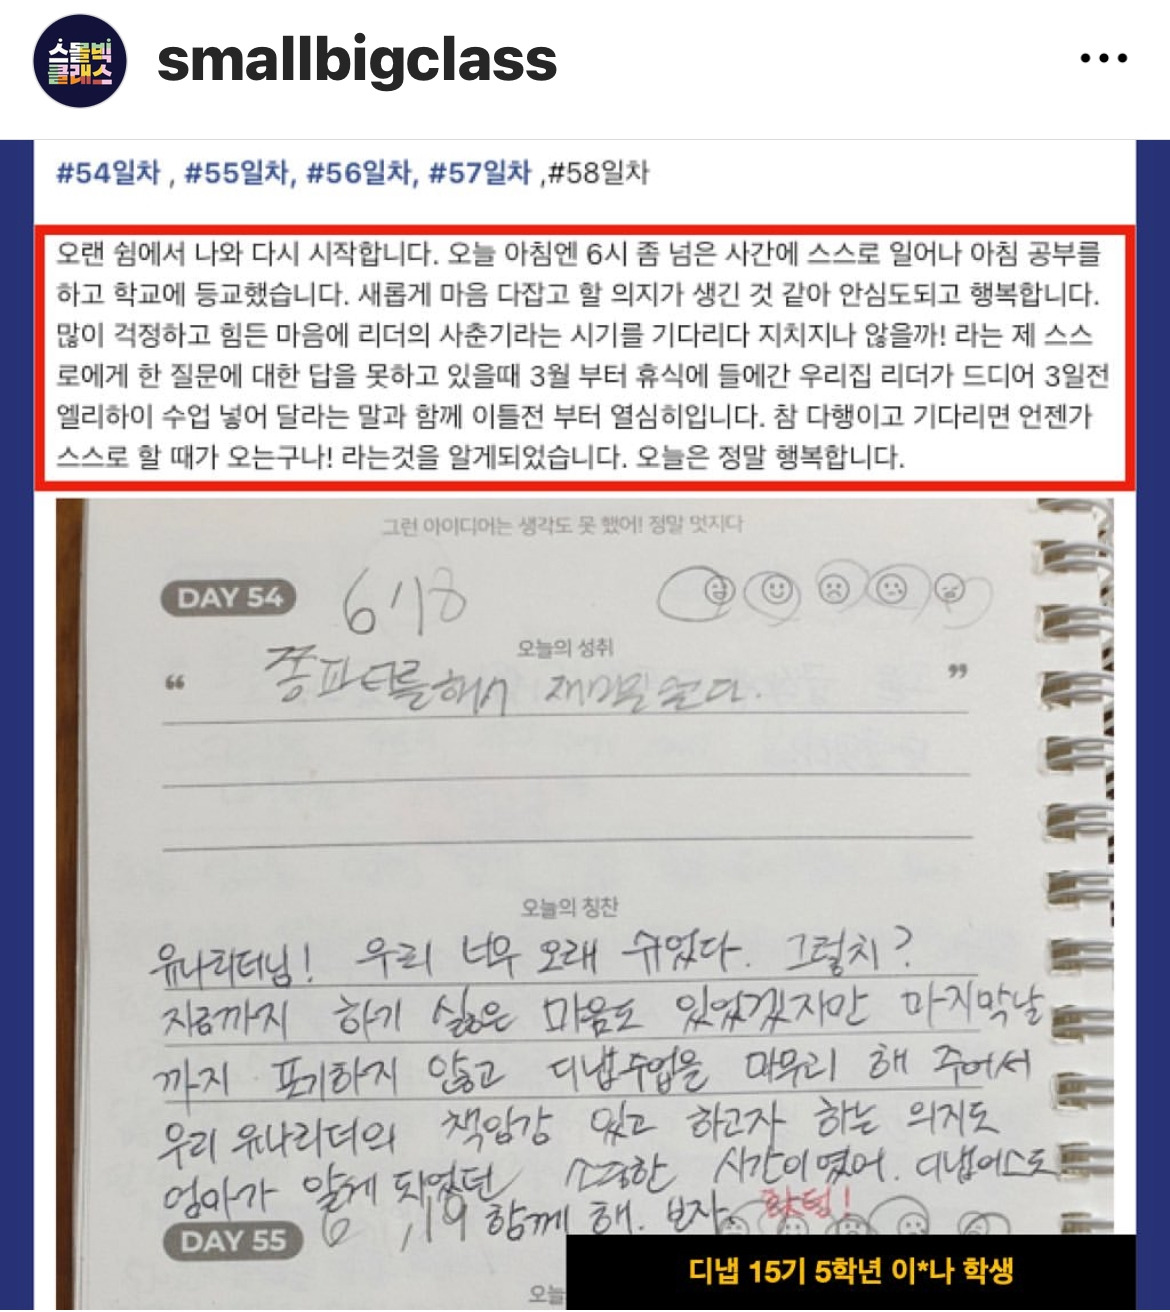 스몰빅
클래스
smallbigclass
#54일차 , #55일차, #56일차, #57일차 ,#58일차
오랜 쉼에서 나와 다시 시작합니다. 오늘 아침엔 6시 좀 넘은 사간에 스스로 일어나 아침 공부를
하고 학교에 등교했습니다. 새롭게 마음 다잡고 할 의지가 생긴 것 같아 안심도되고 행복합니다.
많이 걱정하고 힘든 마음에 리더의 사춘기라는 시기를 기다리다 지치지나 않을까! 라는 제 스스
로에게 한 질문에 대한 답을 못하고 있을때 3월 부터 휴식에 들에간 우리집 리더가 드디어 3일전
엘리하이 수업 넣어 달라는 말과 함께 이틀전 부터 열심히입니다. 참 다행이고 기다리면 언젠가
스스로 할 때가 오는구나! 라는것을 알게되었습니다. 오늘은 정말 행복합니다.
그런 아이디어는 생각도 못 했어! 정말 멋지다
DAY 54 6/18
오늘의 성취
“ 쫑파티를해서 재미있었다. ”
오늘의 칭찬
유나리더님! 우리 너무 오래 쉬었다. 그렇치?
지금까지 하기 싫은 마음도 있었겠지만 마지막날
까지 포기하지 않고 디냅수업을 마무리 해 주어서
우리 유나리더의 책임감 있고 하고자 하는 의지도
엄마가 알게 되었던 소중한 시간이였어. 디냅어스도
함께 해. 보자. 핫팅!
DAY 55 6/19
오늘
디냅 15기 5학년 이*나 학생